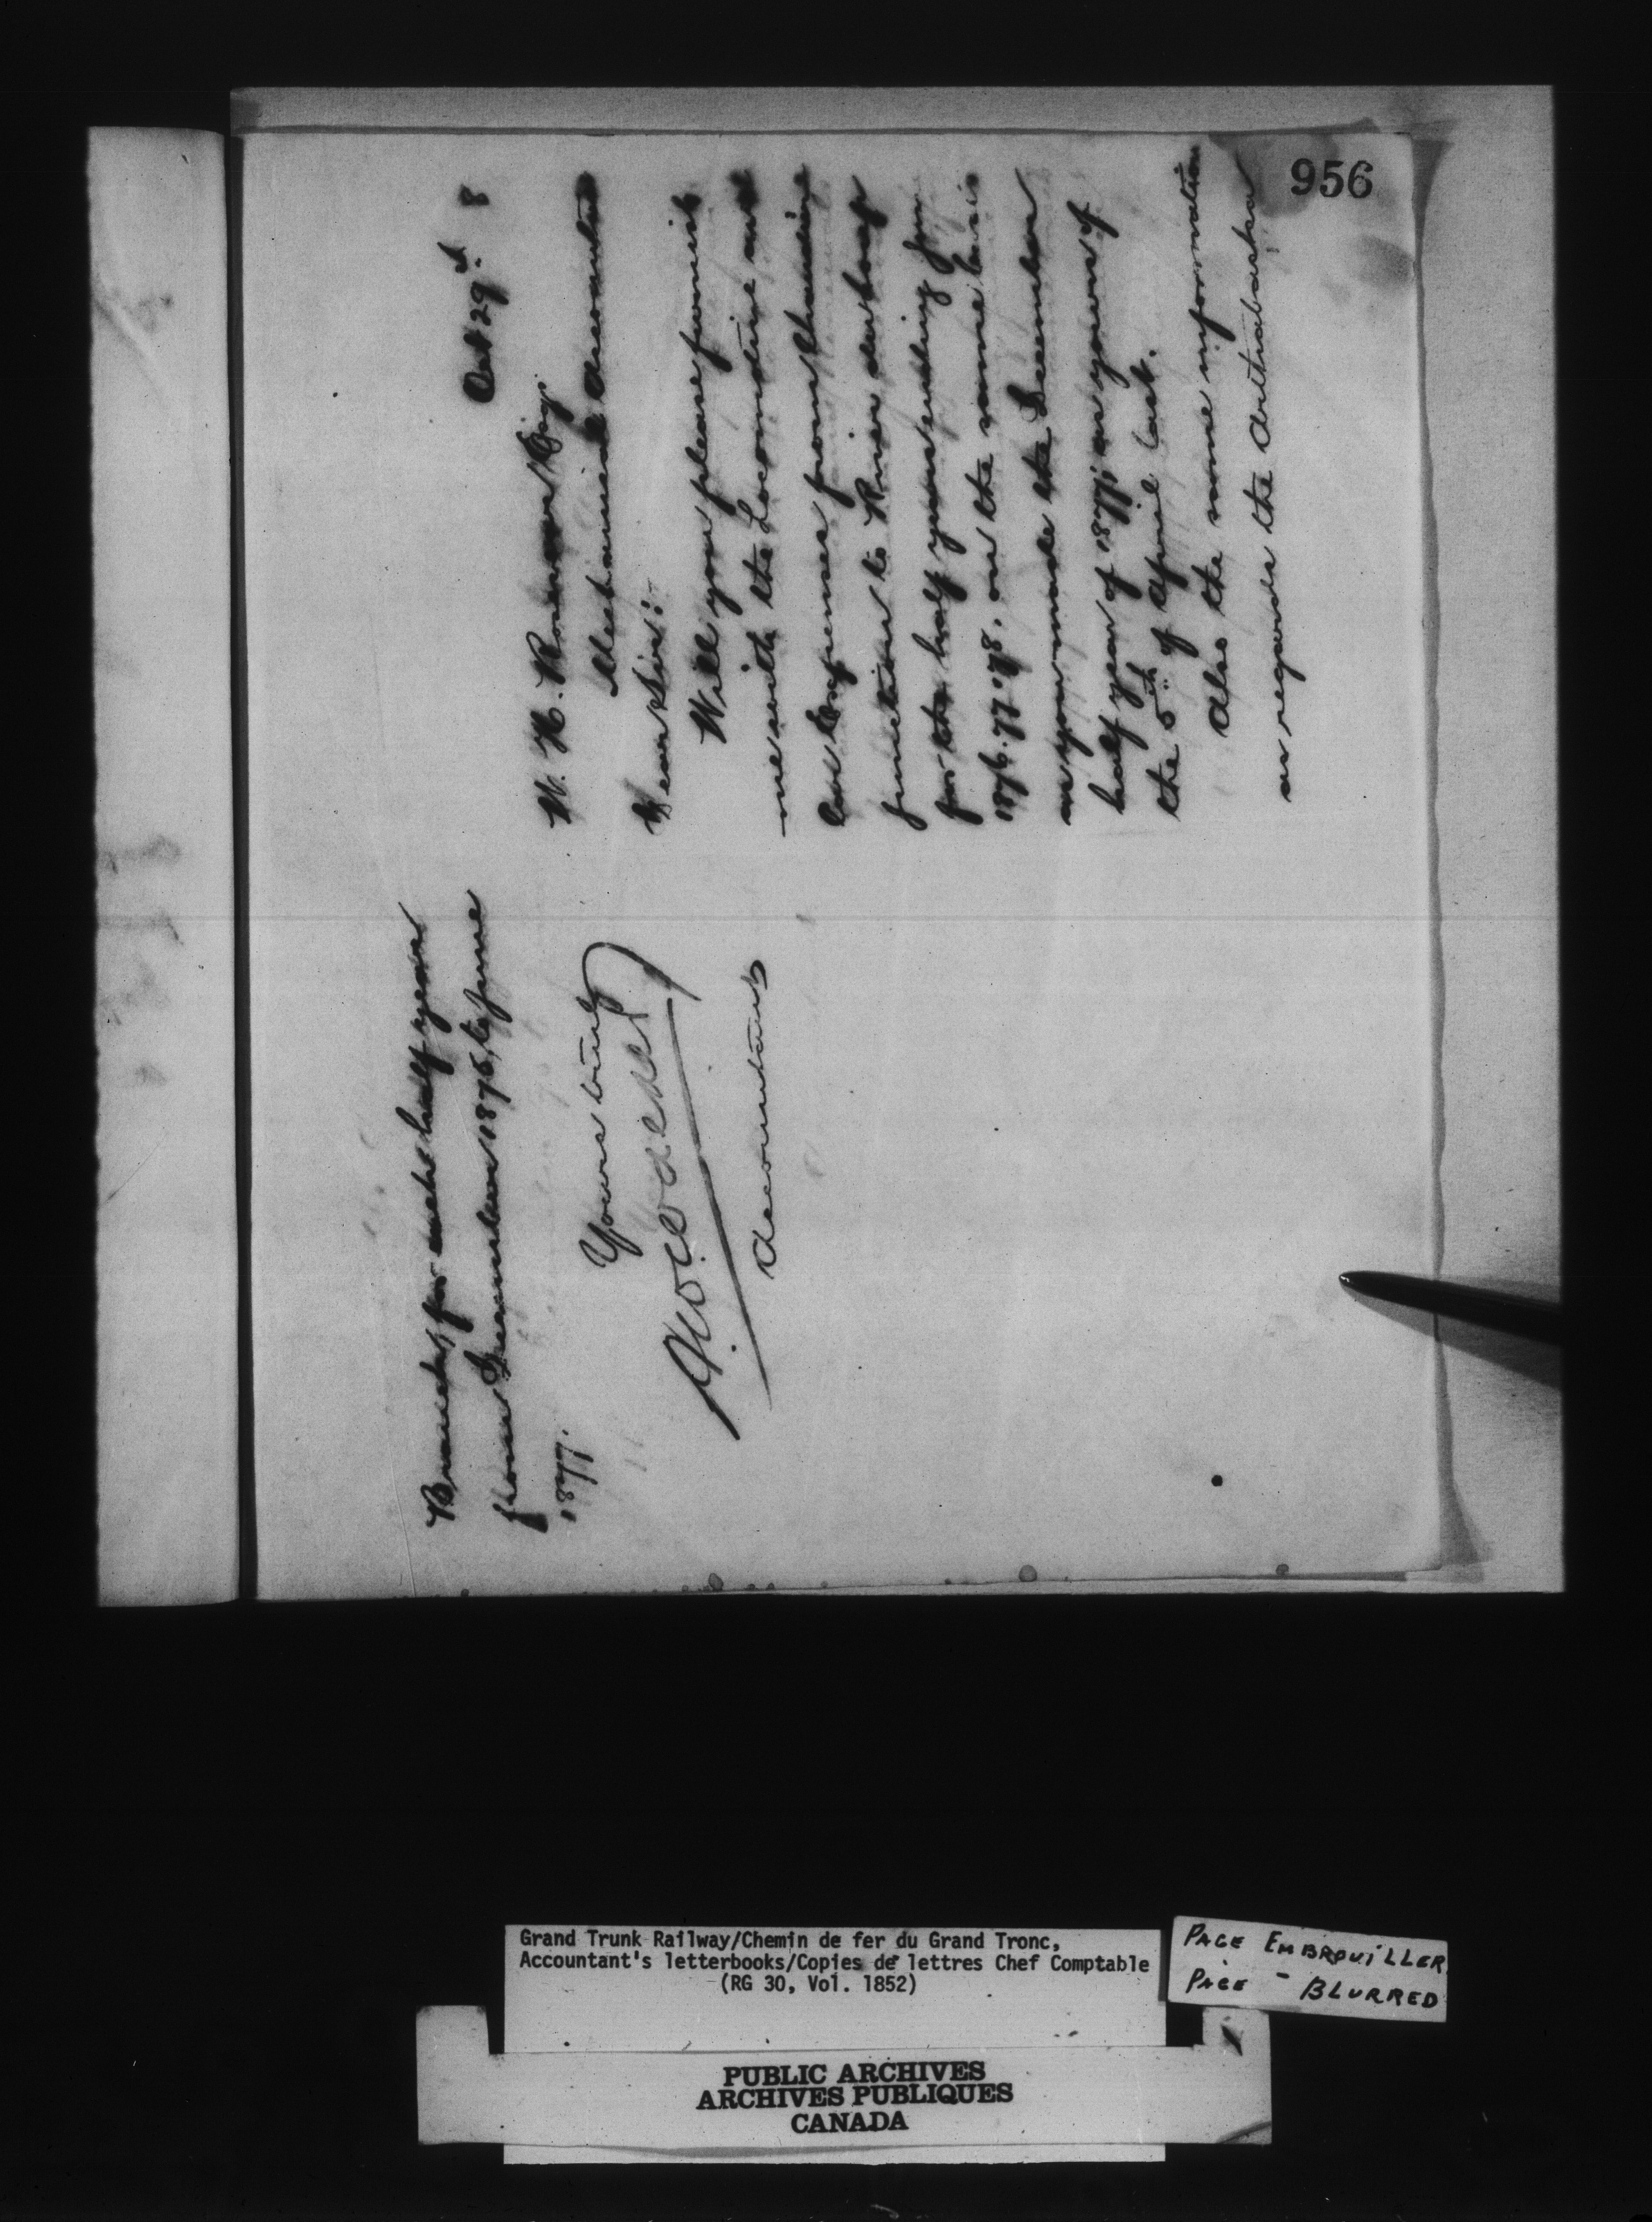 956
Oct 29th 8
W. H. Rosevear Esq.
Mechanical Accountant
Dear Sir:
Will you please furnish
me with the Locomotive and
Car Expenses from Chaudiere
junction to River du Loup
for the half years ending June
1876. 77. 78. on the same basis
as you made the December
half year of 1877, in yours of
the 5th of April last.
Also the same information
as regards the Arthabaska
Branch, for each half year
from December 1875, to June
1877.
Yours truly
Accountant
Grand Trunk Railway/Chemin de fer du Grand Tronc,
Accountant's letterbooks/Copies de lettres Chef Comptable
(RG 30, Vol. 1852)
PAGE EMBROUILLER
PAGE - BLURRED
PUBLIC ARCHIVES
ARCHIVES PUBLIQUES
CANADA